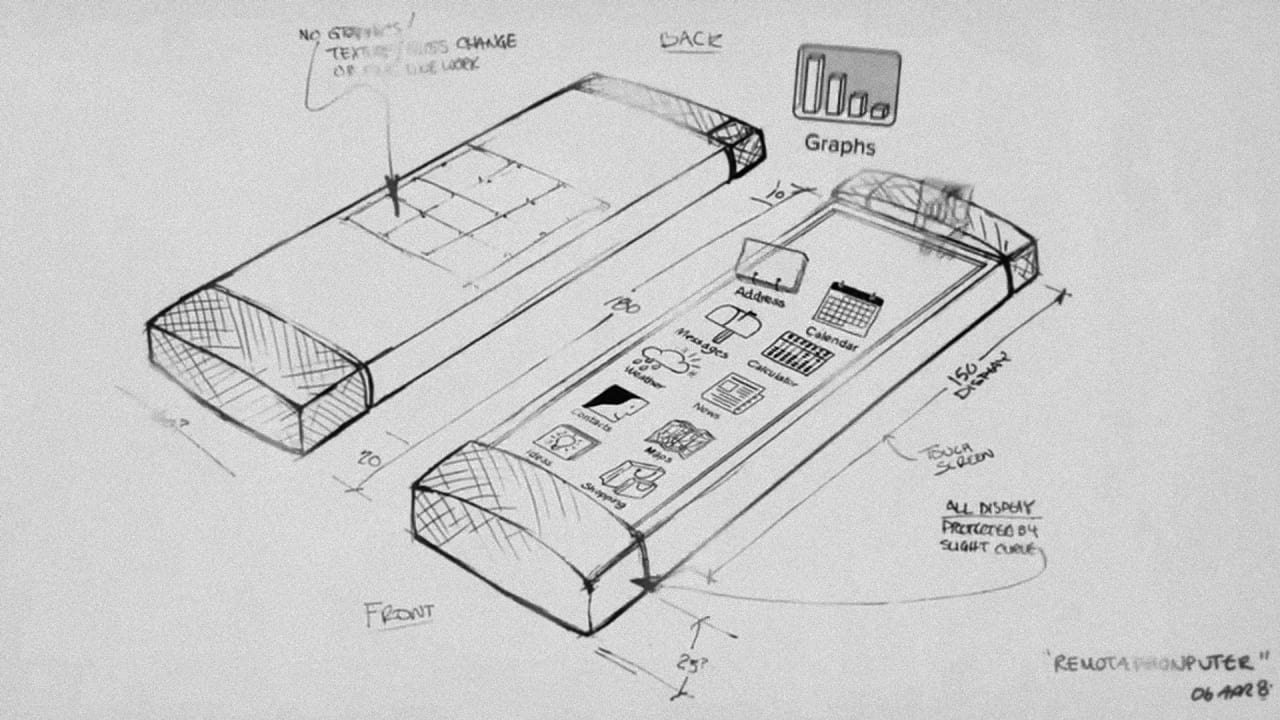 NO GRAPHICS/
TEXTURE/GLOSS CHANGE
OR LINE WORK
BACK
Graphs
10
180
Address
Calendar
Messages
Calculator
Weather
News
Contacts
Maps
Ideas
Shopping
150
DISPLAY
TOUCH
SCREEN
20
ALL DISPLAY
PROTECTED BY
SLIGHT CURVE
FRONT
25?
"REMOTAPHONPUTER"
06 APR 8